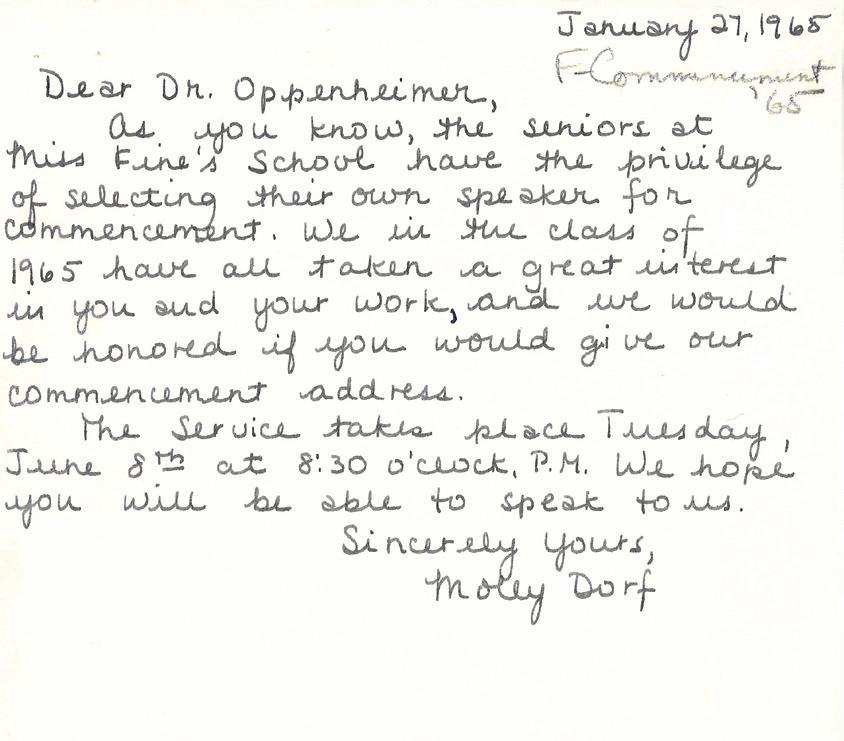 January 27, 1965
F-Commencement
'65
Dear Dr. Oppenheimer,
As you know, the seniors at
Miss Fine's School have the privilege
of selecting their own speaker for
commencement. We in the class of
1965 have all taken a great interest
in you and your work, and we would
be honored if you would give our
commencement address.
The Service takes place Tuesday,
June 8th at 8:30 o'clock, P.M. We hope
you will be able to speak to us.
Sincerely Yours,
Molly Dorf